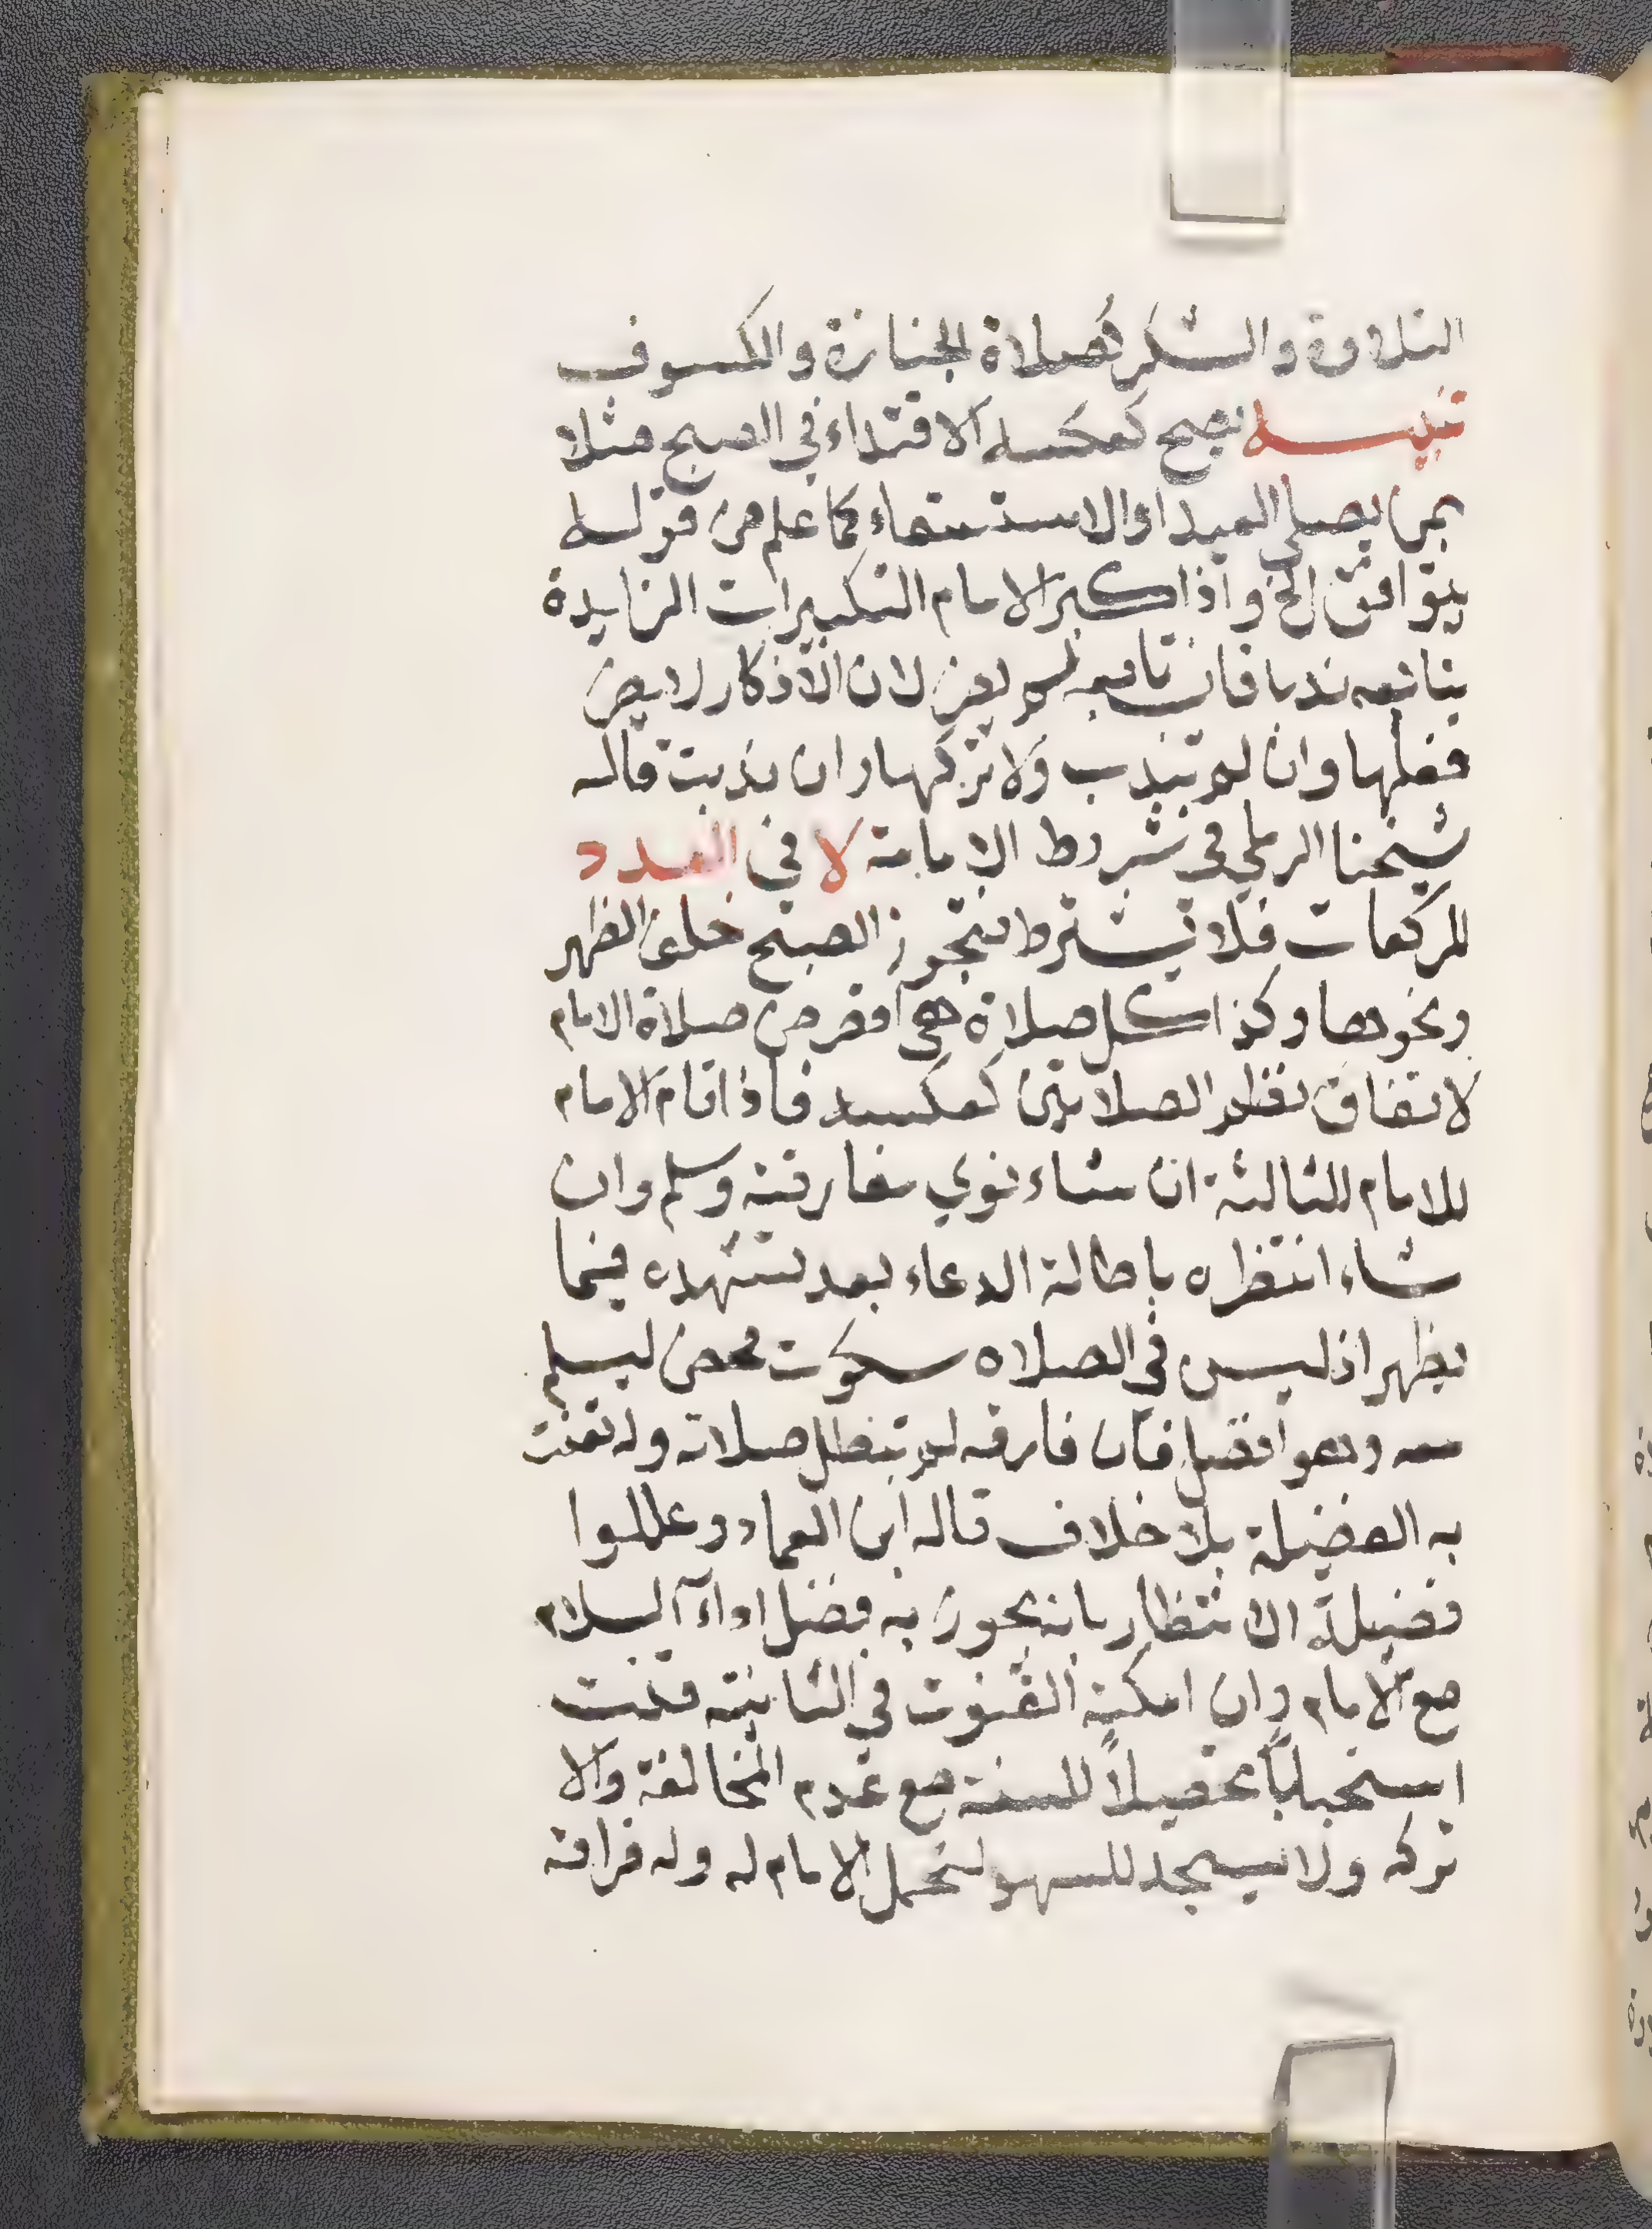 التلاوة والشكر كصلاة الجنازة والكسوف
تنبيه يصح كعكسه الاقتداء في الصبح مثلا
بمن يصلي العيد او الاستسقاء كما علم من قوله
يتوافق الخ واذا كبر الامام التكبيرات الزايدة
يتابعه ندبا فان تابعه لم يضر لان الاذكار لا يضر
فعلها وان لم تندب ولا تركها وان ندبت قاله
شيخنا الرملي في شروط الامامة لا في العدد
للركعات فلا يشترط فتجوز الصبح خلف الظهر
ونحوها وكذا كل صلاة هي اقصر من صلاة الامام
لاتفاق نظم الصلاتين كعكسه فاذا قام الامام
للامام للثالثة ان شاء نوي مفارقته وسلم وان
شاء انتظره باطالة الدعاء بعد تشهده فيما
يظهر اذ ليس في الصلاه سكوت محض ليسلم
معه وهو افضل فان فارقه لم تبطل صلاته وله تفت
به الفضيلة بلا خلاف قاله ابن العماد وعللوا
فضيلة الانتظار بانه يحوز به فضل اداء السلام
مع الامام وان امكنه القنوت في الثانية قنت
استحبابا تحصيلاً للسنة مع عدم المخالفة والا
تركه ولا يسجد للسهو لتحمل الامام له وله فراقه